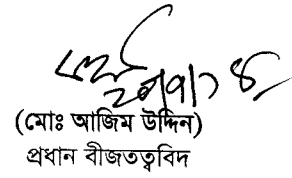 (মোঃ আজিম উদ্দিন)
প্রধান বীজতত্ববিদ